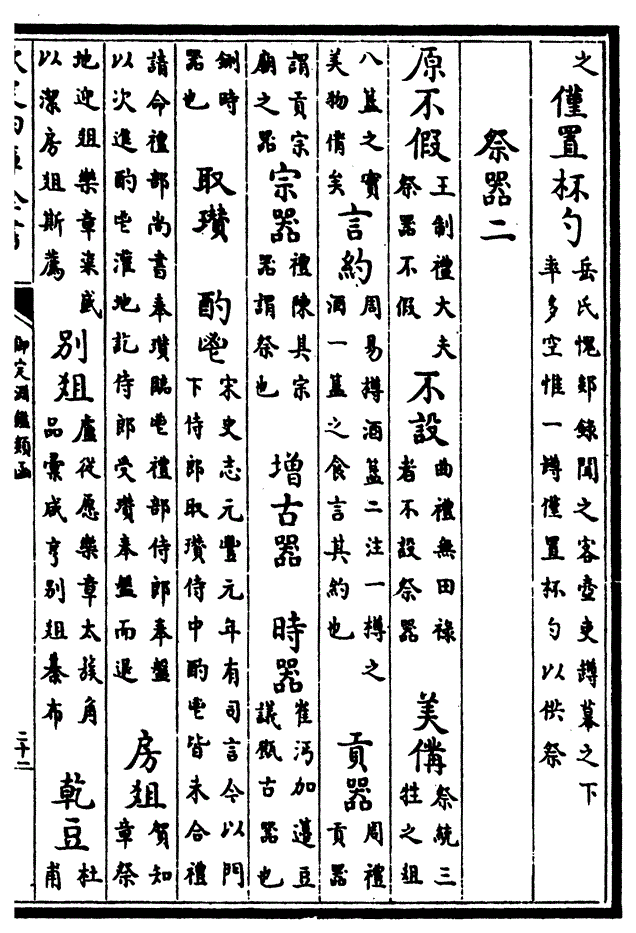 之 僅置杯勺 岳氏愧郯録聞之客壺吏罇幕之下率多空惟一罇僅置杯勺以供祭
祭器二
原不假 王制禮大夫祭器不假 不設 曲禮無田禄者不設祭器 美備 祭統三牲之俎
八簋之實美物備矣 言約 周易樽酒簋二注一樽之酒一簋之食言其約也 貢器 周禮貢器
謂貢宗廟之器 宗器 禮陳其宗器謂祭也 增古器 時器 崔沔加籩豆議甒古器也
鉶時器也 取瓚 酌鬯 宋史志元豐元年有司言今以門下侍郎取瓚侍中酌鬯皆未合禮
請命禮部尚書奉瓚臨鬯禮部侍郎奉盤以次進酌鬯灌地訖侍郎受瓚奉盤而退 房俎 賀知章祭
地迎俎樂章粢盛以潔房俎斯薦 別俎 盧從愿樂章太族角品彙咸亨別俎綦布 乾豆 杜甫
御定淵鑑類函 二十二